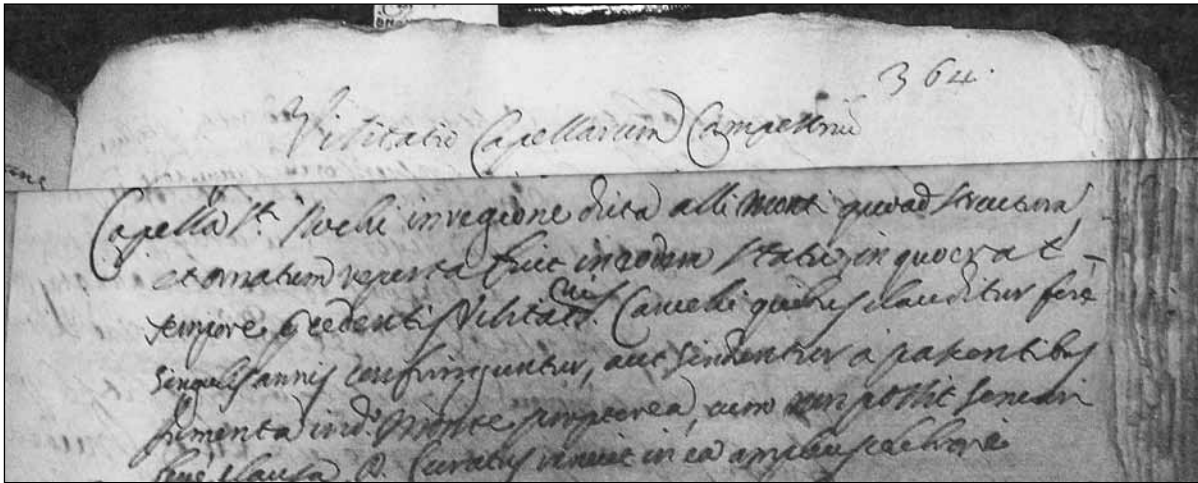 364.
Visitatio Capellarum Campertonii
Capella Sti. Rochi in regione dicta alli Monti quoad structuram,
et ornatum reperta fuit in eodem statu, in quo erat
tempore precedentis Visitationis. Cancelli quibus clauditur ferè
singulis annis confringuntur, aut scinduntur à
in do. Monte propterea, cum non possit
clausa D. Curatus in ea amplius